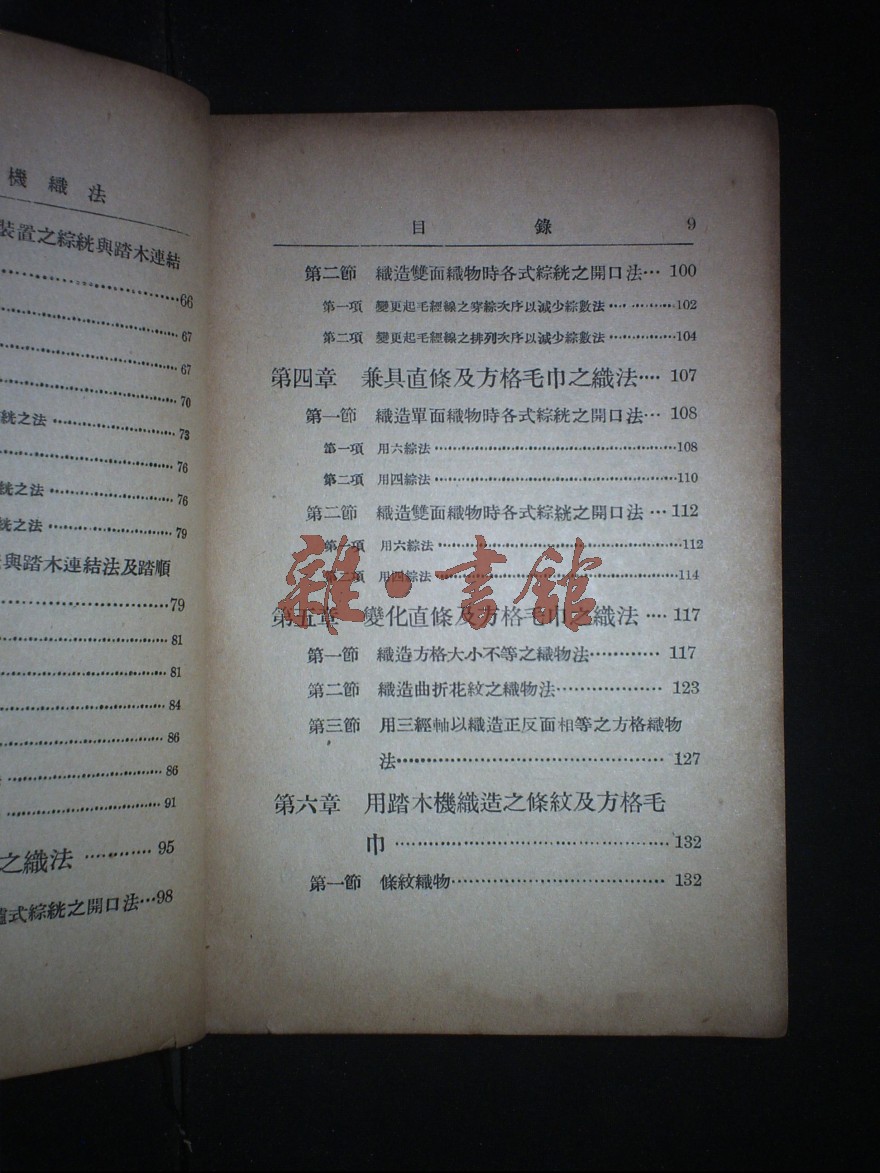 機織法
裝置之綜絖與踏木連結
……66
……67
……67
……70
絖之法……73
……76
絖之法……76
絖之法……79
與踏木連結法及踏順
……79
……81
……81
……84
……86
……86
……91
之織法……95
式綜絖之開口法…98
目錄 9
第二節 織造雙面織物時各式綜絖之開口法…100
第一項 變更起毛經線之穿綜次序以減少綜數法……102
第二項 變更起毛經線之排列次序以減少綜數法……104
第四章 兼具直條及方格毛巾之織法…107
第一節 織造單面織物時各式綜絖之開口法…108
第一項 用六綜法……108
第二項 用四綜法……110
第二節 織造雙面織物時各式綜絖之開口法…112
第一項 用六綜法……112
第二項 用四綜法……114
第五章 變化直條及方格毛巾之織法…117
第一節 織造方格大小不等之織物法……117
第二節 織造曲折花紋之織物法……123
第三節 用三經軸以織造正反面相等之方格織物
法……127
第六章 用踏木機織造之條紋及方格毛
巾……132
第一節 條紋織物……132
雜·書館